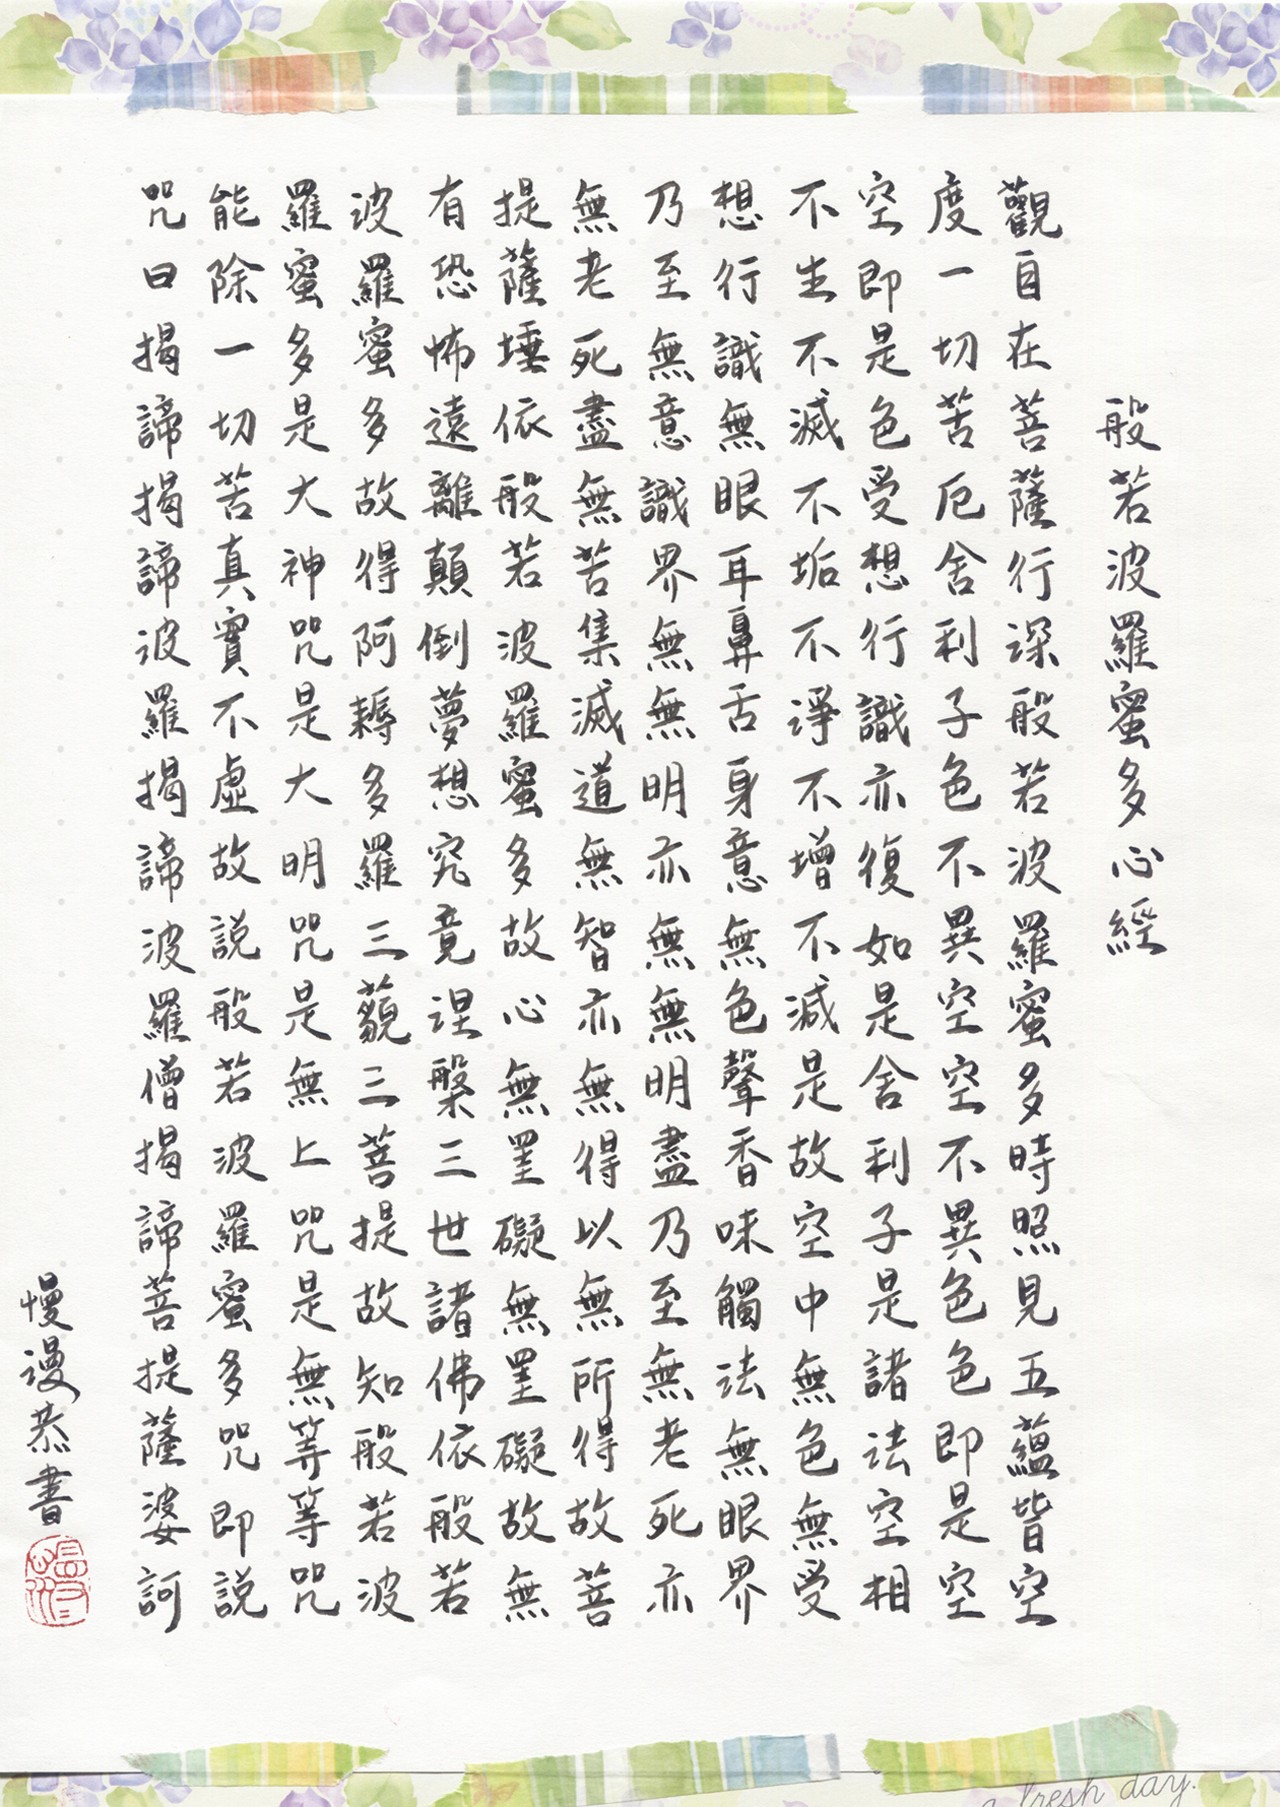 般若波羅蜜多心經
觀自在菩薩行深般若波羅蜜多時照見五蘊皆空
度一切苦厄舍利子色不異空空不異色色即是空
空即是色受想行識亦復如是舍利子是諸法空相
不生不滅不垢不淨不增不減是故空中無色無受
想行識無眼耳鼻舌身意無色聲香味觸法無眼界
乃至無意識界無無明亦無無明盡乃至無老死亦
無老死盡無苦集滅道無智亦無得以無所得故菩
提薩埵依般若波羅蜜多故心無罣礙無罣礙故無
有恐怖遠離顛倒夢想究竟涅槃三世諸佛依般若
波羅蜜多故得阿耨多羅三藐三菩提故知般若波
羅蜜多是大神咒是大明咒是無上咒是無等等咒
能除一切苦真實不虛故說般若波羅蜜多咒即說
咒曰揭諦揭諦波羅揭諦波羅僧揭諦菩提薩婆訶
慢漫恭書
a fresh day.